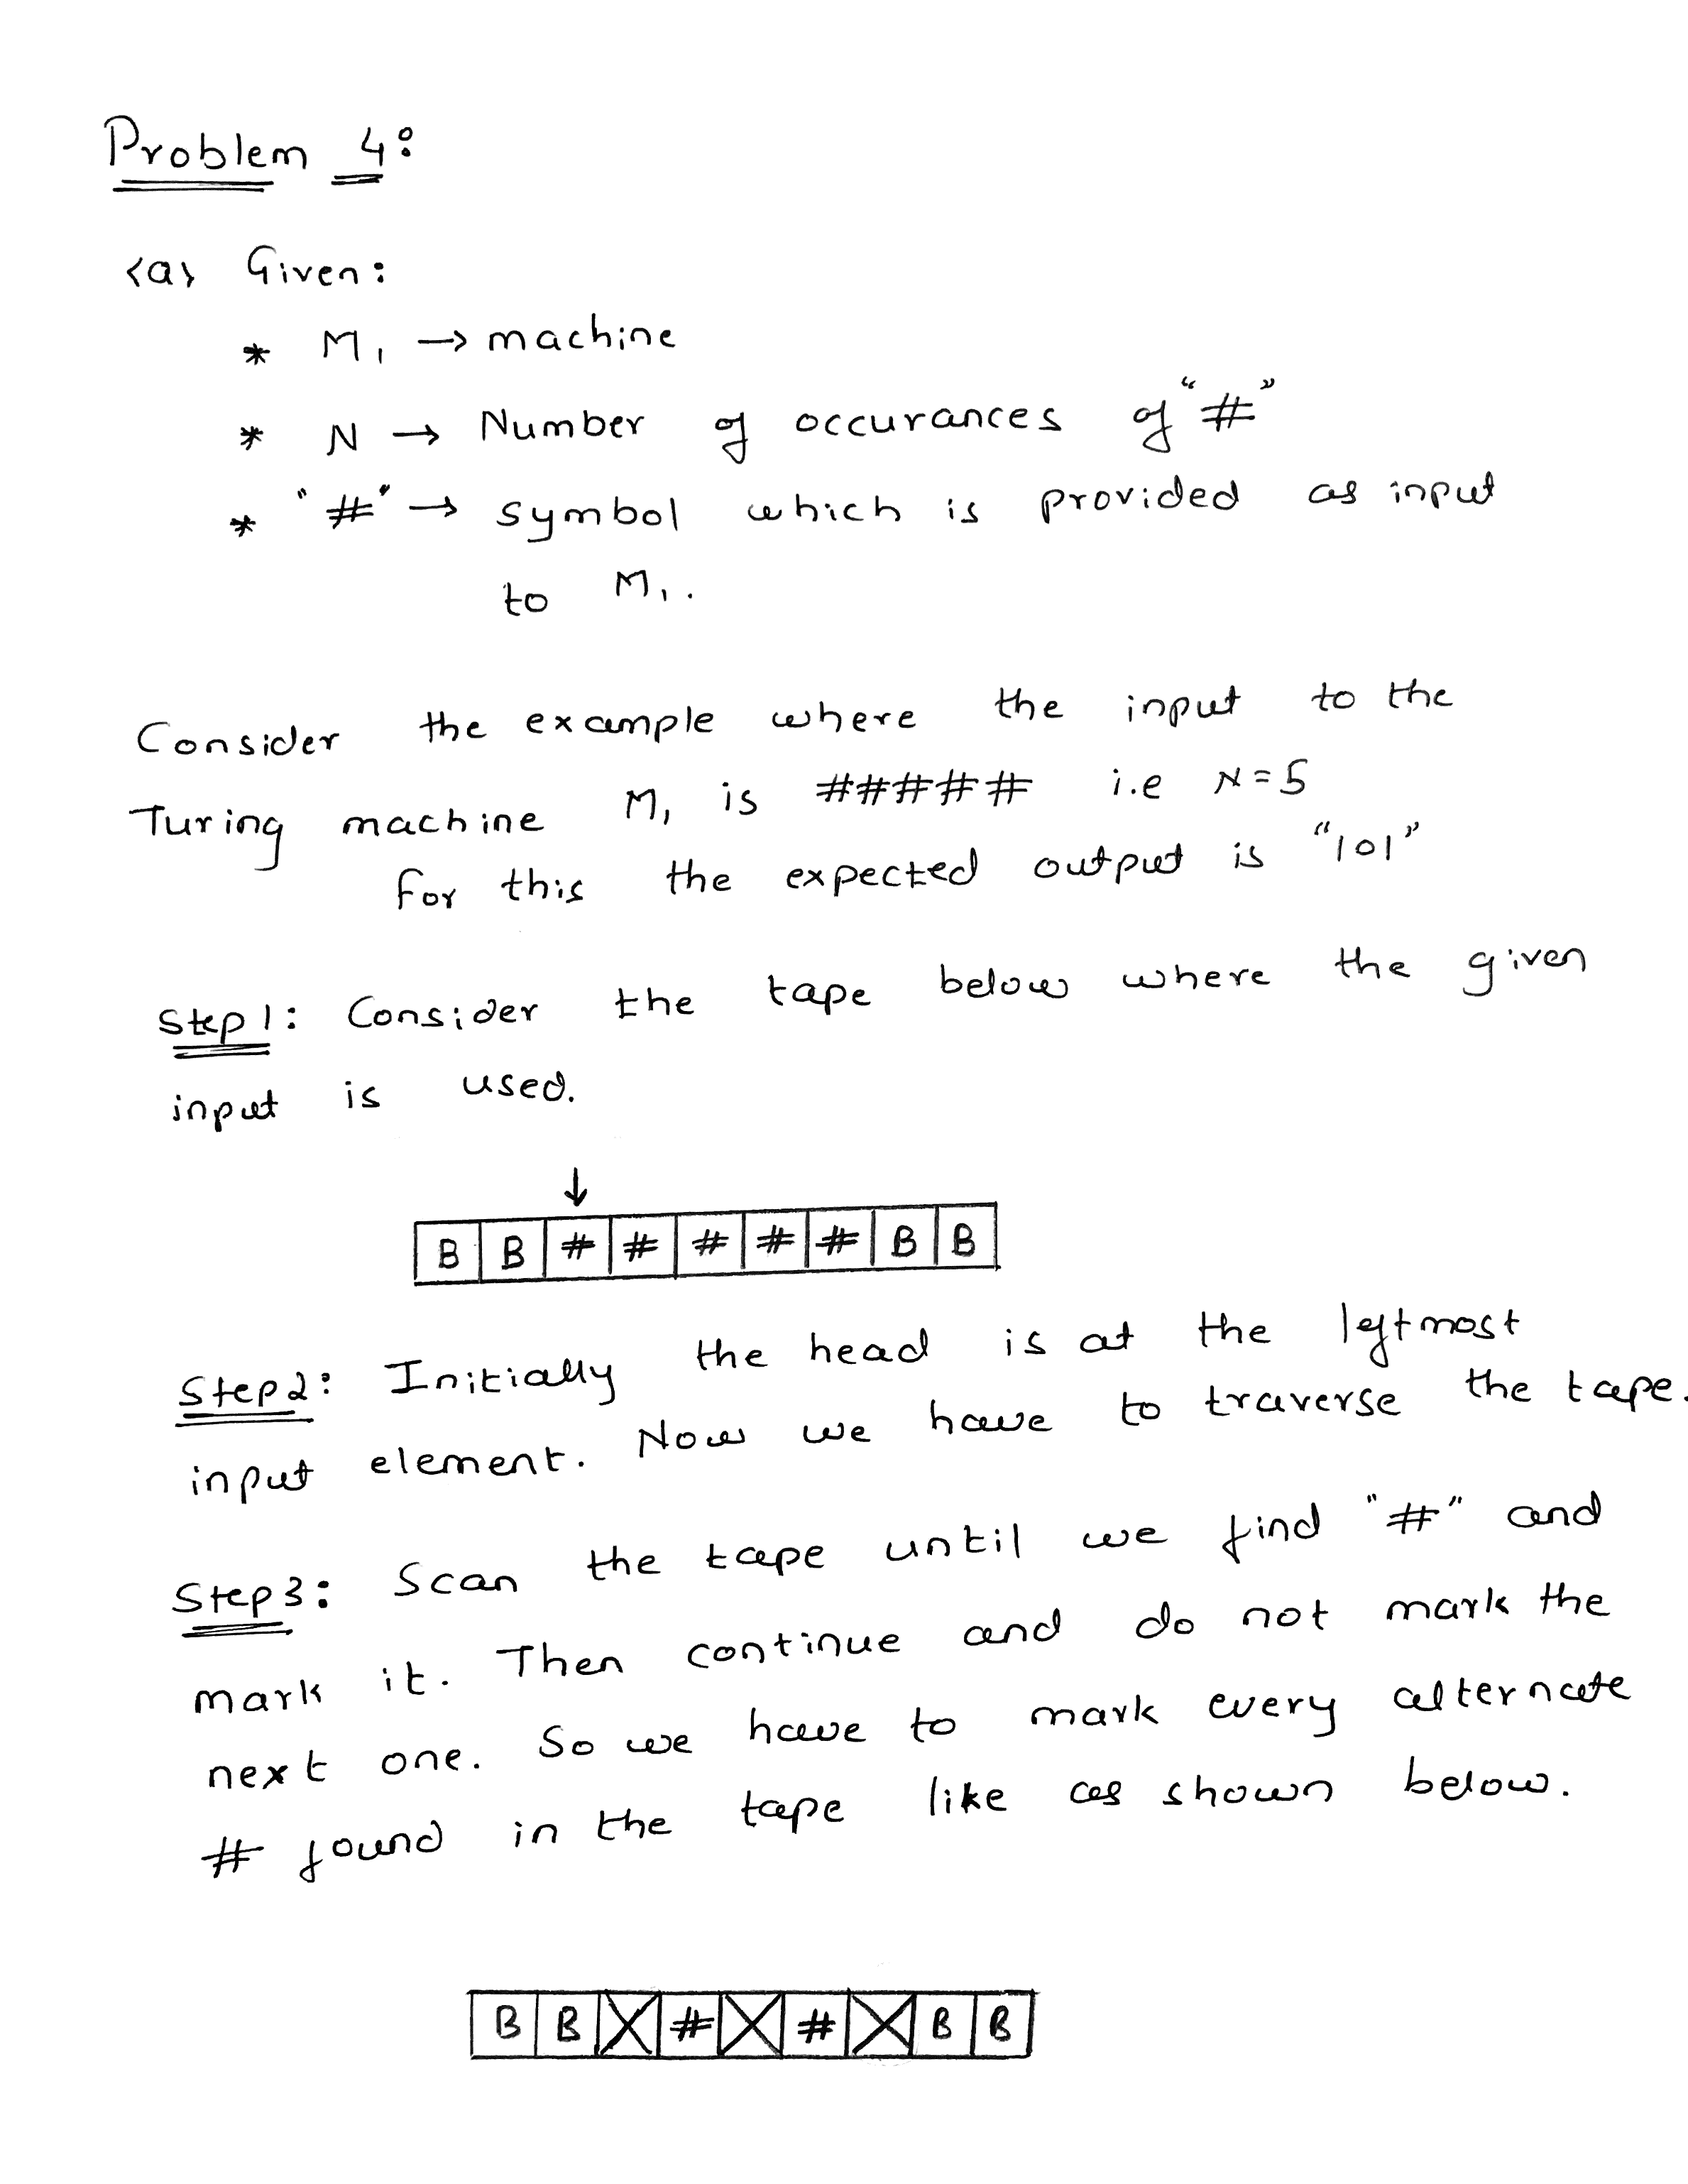 Problem 4:
<a> Given:
* M1 → machine
* N → Number of occurances of "#"
* "#" → symbol which is provided as input
to M1.
Consider the example where the input to the
Turing machine M1 is ##### i.e N=5
For this the expected output is "101"
Step1: Consider the tape below where the given
input is used.
↓
B B # # # # # B B
Step2: Initially the head is at the leftmost
input element. Now we have to traverse the tape.
Step3: Scan the tape until we find "#" and
mark it. Then continue and do not mark the
next one. So we have to mark every alternate
# found in the tape like as shown below.
B B X # X # X B B